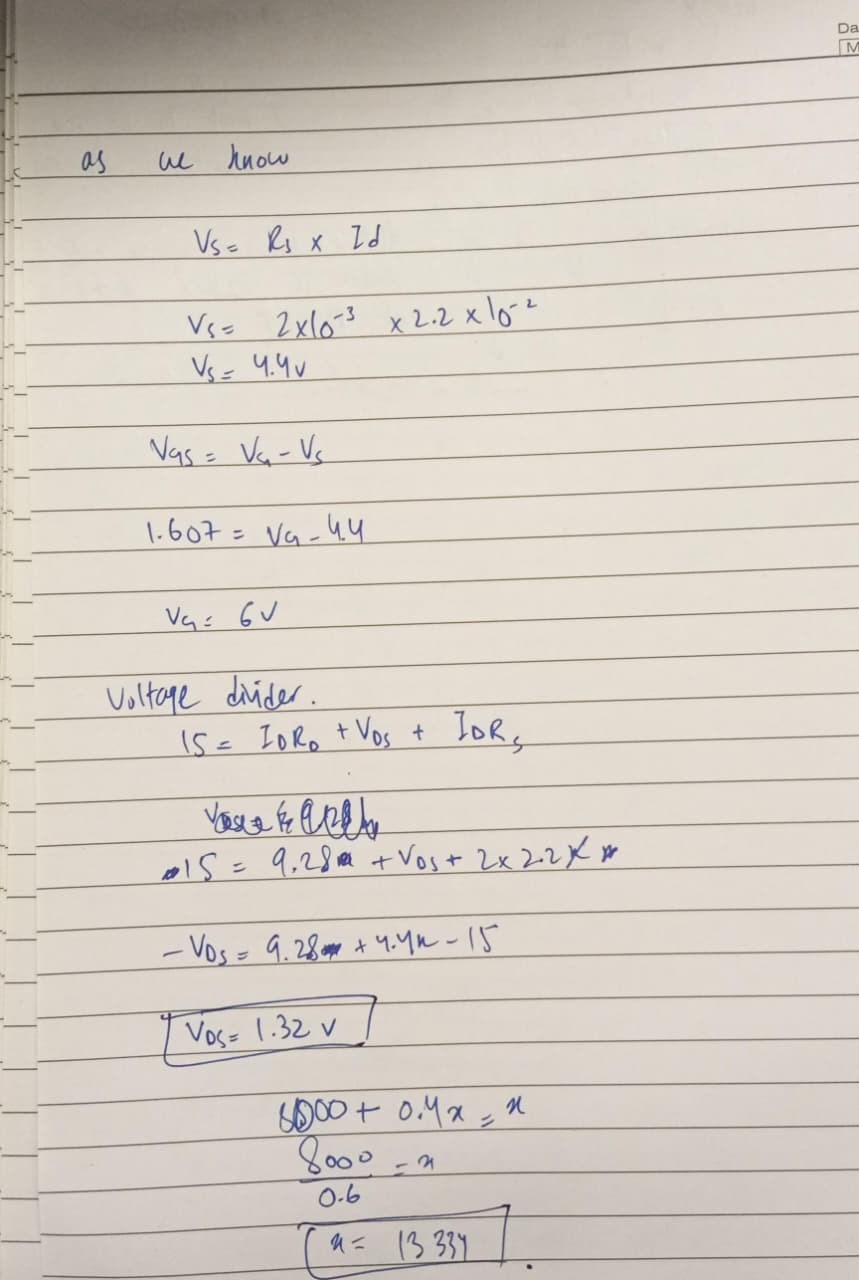 Da
M
as we know
Vs = Rs x Id
Vs = 2x10⁻³ x 2.2 x 10⁻²
Vs = 4.4v
VGS = VG - Vs
1.607 = VG - 4.4
VG = 6V
Voltage divider.
15 = IDRD + VDS + IDRS
15 = 9.28 + VDS + 2x 2.2
-VDS = 9.28 + 4.4 - 15
VDS = 1.32 v
000 + 0.4x = x
8000 = x
0.6
x = 13334